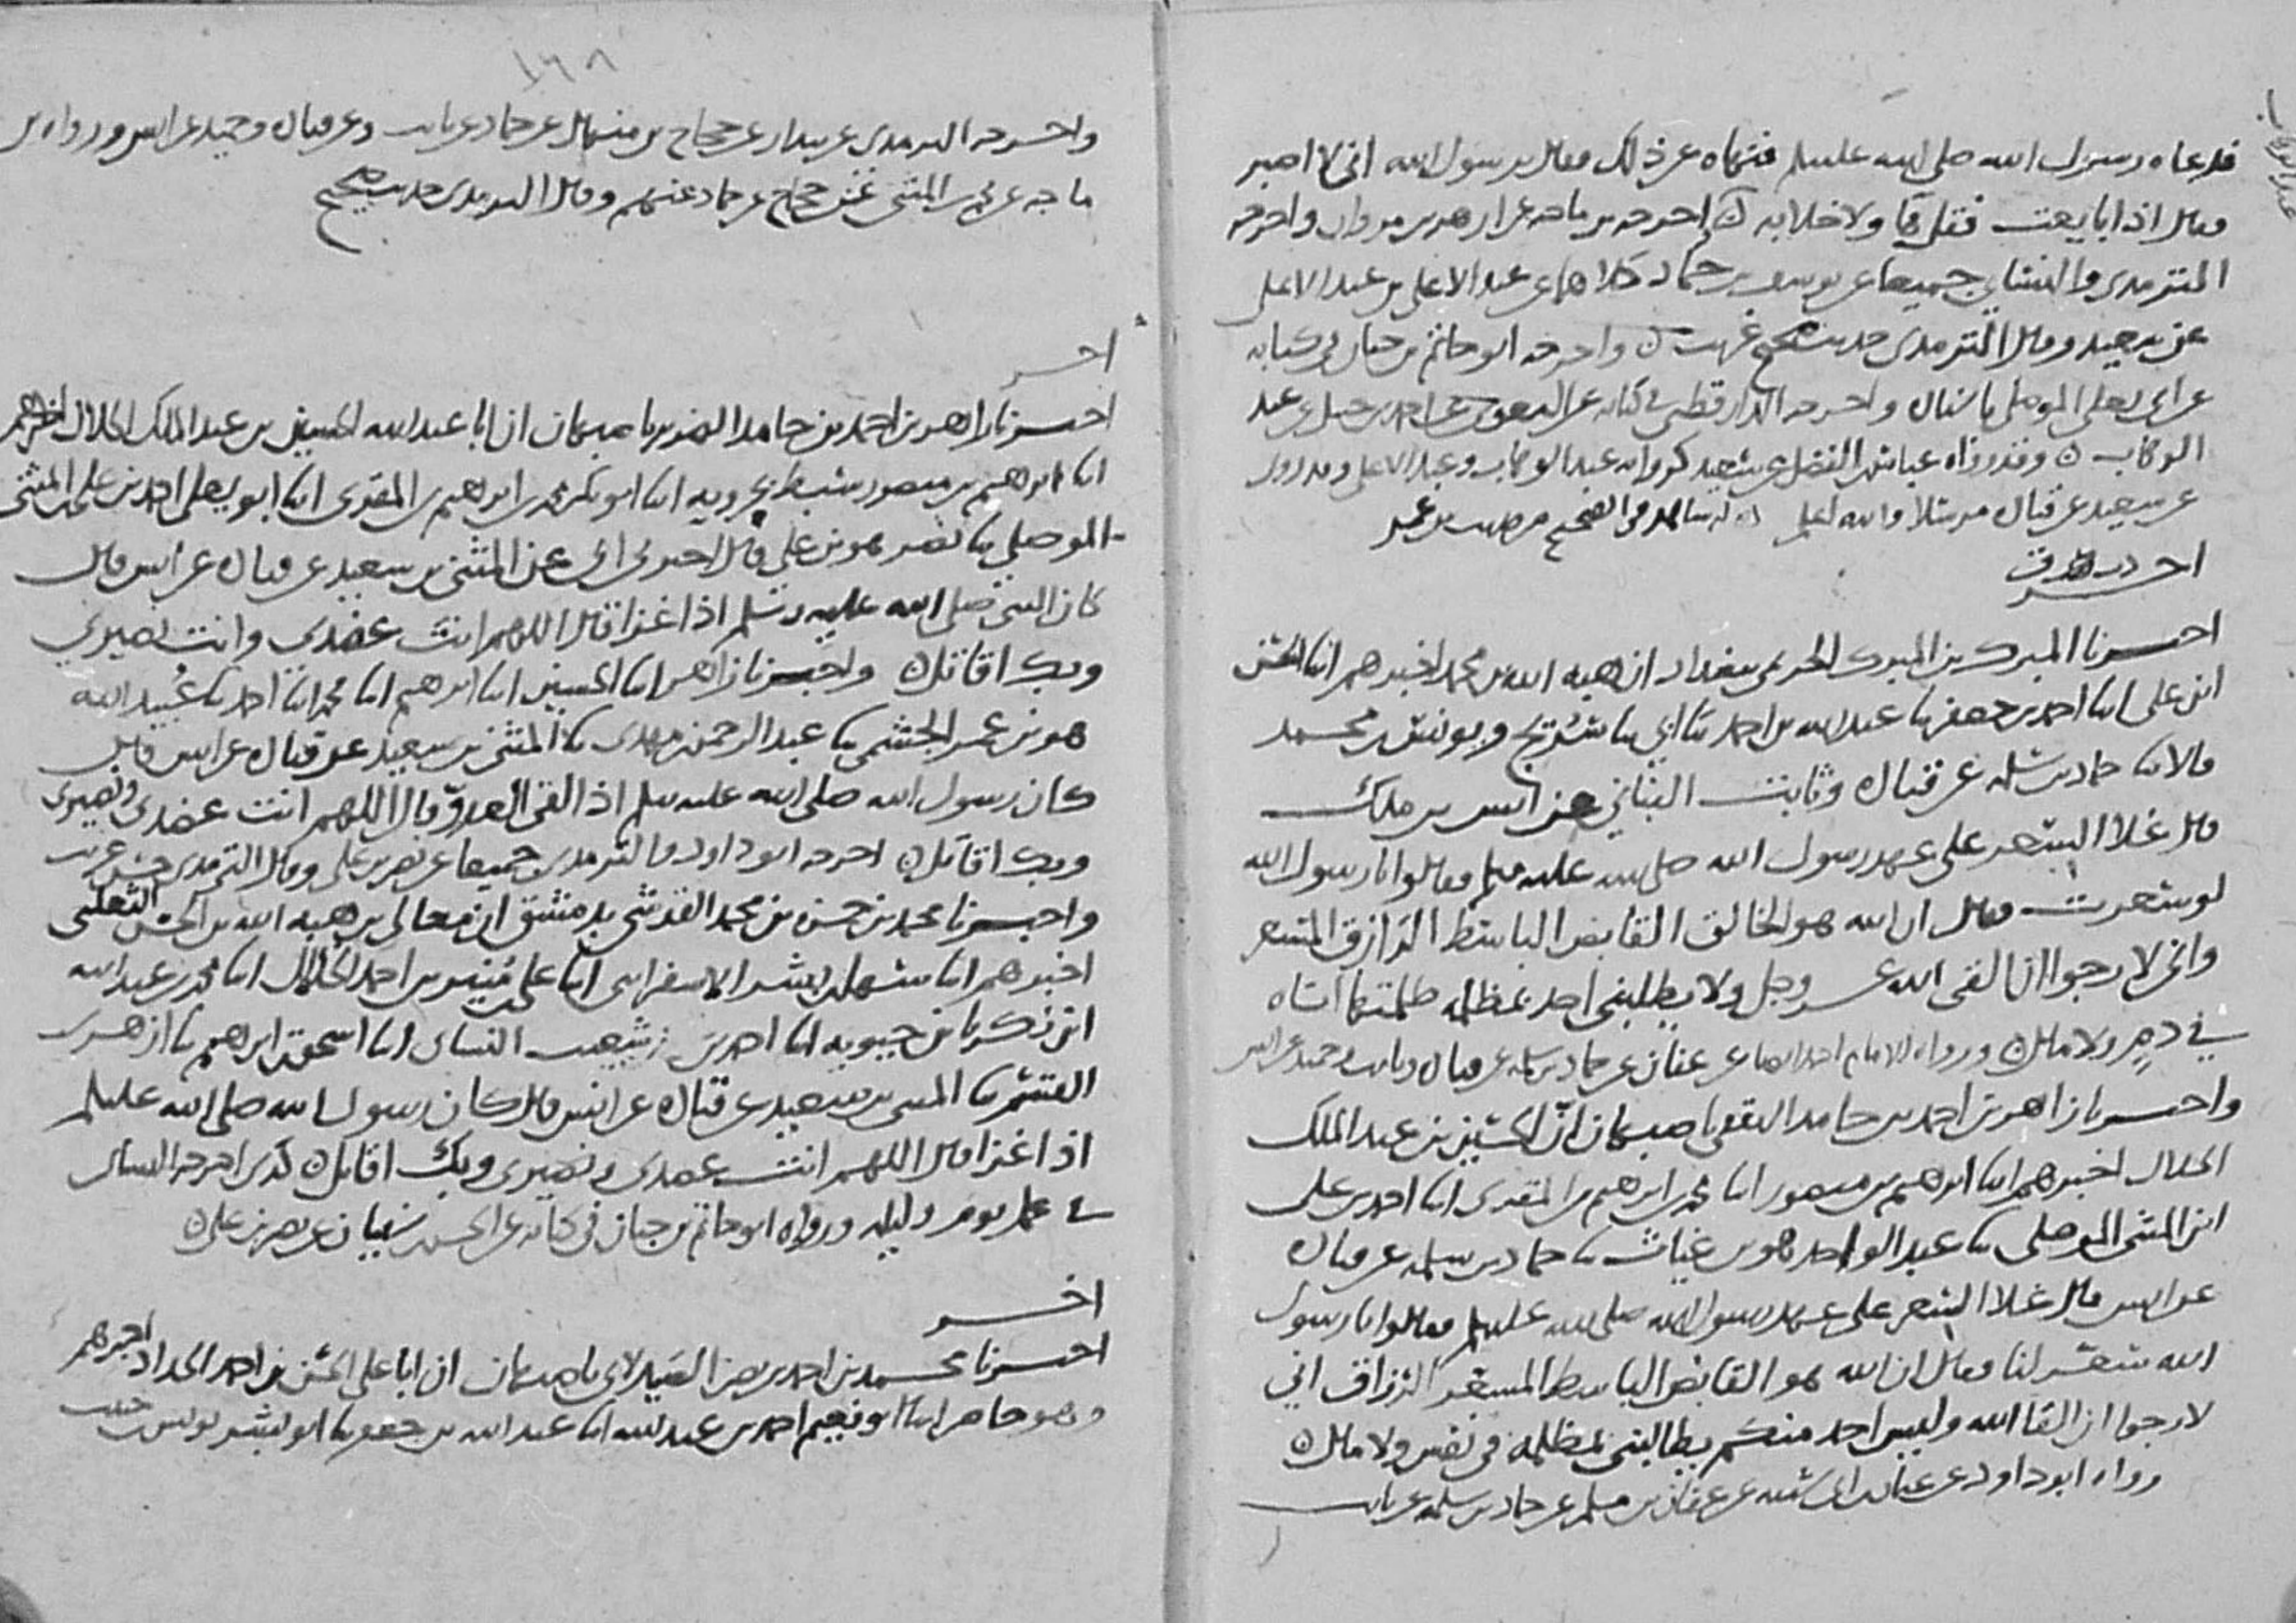 فدعاه رسول الله صلى الله عليه وسلم فنهاه عن ذلك فقال يرسول الله اني لا اصبر
فقال اذا بايعت فقل ها ولا خلابه ن اخرجه بن ماجه عن ازهر بن مروان واخرجه
الترمذي والنسائي جميعا عن يوسف بن حماد كلاهما عن عبد الاعلى بن عبد الاعلى
عن سعيد وقال الترمذي حديث صحيح غريب ن واخرجه ابو حاتم بن حبان في كتابه
عن ابي يعلى الموصلي باسناده واخرجه الدارقطني في كتابه عن البغوي عن احمد بن حنبل عن عبد
الوهاب ن وقد رواه عباس بن الفضل عن سعيد كرواية عبد الوهاب وعبد الاعلى وقد روي
عن سعيد عن قتادة مرسلا والله اعلم له شاهد في الصحيح من حديث بن عمر
اخر
اخبرنا المبرك بن المبرك الحريمي ببغداد ان هبه الله بن محمد اخبرهم انا الحسن
ابن علي انا احمد بن جعفر نا عبد الله بن احمد نا ابي نا سريج ويونس بن محمد
قالا نا حماد بن سلمه عن قتادة وثابت البناني عن انس بن ملك
قال غلا السعر على عهد رسول الله صلى الله عليه وسلم فقالوا يا رسول الله
لو سعرت فقال ان الله هو الخالق القابض الباسط الرازق المسعر
واني لارجوا ان القى الله عز وجل ولا يطلبني احد بمظلمه ظلمتها اياه
في دم ولا مال ن ورواه الامام احمد ايضا عن عفان عن حماد بن سلمه عن قتادة وثابت وحميد عن انس
واخبرنا زاهر بن احمد بن حامد الثقفي باصبهان ان الحسين بن عبد الملك
الخلال اخبرهم انا ابرهيم بن منصور انا محمد بن ابرهيم بن المقري انا احمد بن علي
ابن المثنى الموصلي نا عبد الواحد هو بن غياث نا حماد بن سلمه عن قتادة
عن انس قال غلا السعر على عهد رسول الله صلى الله عليه وسلم فقالوا يا رسول
الله سعر لنا فقال ان الله هو القابض الباسط المسعر الرزاق اني
لارجوا ان القا الله وليس احد منكم يطالبني بمظلمه في نفس ولا مال ن
رواه ابو داود عن عثمان بن ابي شيبه عن عفان بن مسلم عن حماد بن سلمه عن ثابت
١٦٨
واخرجه الترمذي عن بندار عن حجاج بن منهال عن حماد عن ثابت وعن قتادة وحميد عن انس ورواه بن
ماجه عن محمد بن المثنى عن حجاج عن حماد عنهم وقال الترمذي حديث صحيح
اخر
اخبرنا زاهر بن احمد بن حامد باصبهان ان ابا عبد الله الحسين بن عبد الملك الخلال اخبرهم
انا ابرهيم بن منصور سبط بحرويه انا ابو بكر محمد بن ابرهيم بن المقري انا ابو يعلى احمد بن علي بن المثنى
الموصلي نا نصر هو بن علي قال اخبرني ابي عن المثنى بن سعيد عن قتادة عن انس قال
كان النبي صلى الله عليه وسلم اذا غزا قال اللهم انت عضدي وانت نصيري
وبك اقاتل ن واخبرنا زاهر انا الحسين انا ابرهيم انا محمد انا احمد نا عبيد الله
هو بن عمر الجشمي نا عبد الرحمن بن مهدي نا المثنى بن سعيد عن قتادة عن انس قال
كان رسول الله صلى الله عليه وسلم اذا لقى العدو قال اللهم انت عضدي ونصيري
وبك اقاتل ن اخرجه ابو داود والترمذي جميعا عن نصر بن علي وقال الترمذي حسن غريب
واخبرنا محمد بن حسن بن محمد القدسي بدمشق ان معالي بن هبه الله بن الحسن الثعلبي
اخبرهم انا سهل بن بشر الاسفرايني انا علي بن منير بن احمد الخلال انا محمد بن عبد الله
ابن زكريا بن حيويه انا احمد بن شعيب النساي انا اسحق بن ابرهيم نا ازهر
نا المثنى بن سعيد عن قتادة عن انس قال كان رسول الله صلى الله عليه وسلم
اذا غزا قال اللهم انت عضدي ونصيري وبك اقاتل ن كذي اخرجه النساي
في عمل يوم وليله ورواه ابو حاتم بن حبان في كتابه عن الحسن بن سفيان عن نصر بن علي ن
اخر
اخبرنا محمد بن احمد بن نصر الصيدلاني باصبهان ان ابا علي الحسن بن احمد الحداد اخبرهم
وهو حاضر انا ابو نعيم احمد بن عبد الله انا عبد الله بن جعفر نا ابو بشر يونس بن حبيب